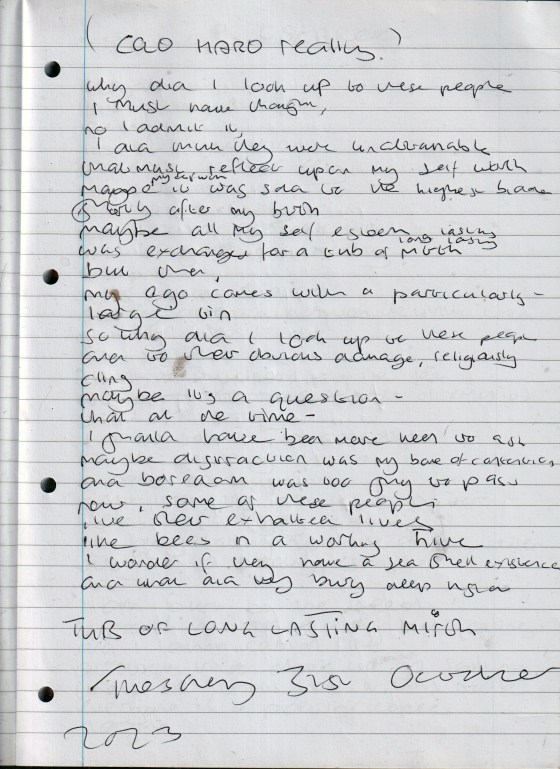 ( CAO HARD really.)
why did I look up to these people
I must have changed,
no I admit it,
I did think they were undeniable
that must reflect upon my self worth
maybe it was sold to the highest
shortly after my birth
maybe all my self esteem
was exchanged for a tub of long lasting mirth
but then,
my ego comes with a particularly -
large bin
so why did I look up to these people
and to their obvious damage, religiously
cling
maybe it's a question -
that at the time -
I should have been more keen to ask
maybe distraction was my bone of contention
and boredom was too to pass
now, some of these people
live their exhausted lives
like bees in a working hive
I wonder if they have a sea shell existence
and what did they bury deep
TUB OF LONG LASTING MIRTH
Tuesday 31st October
2023